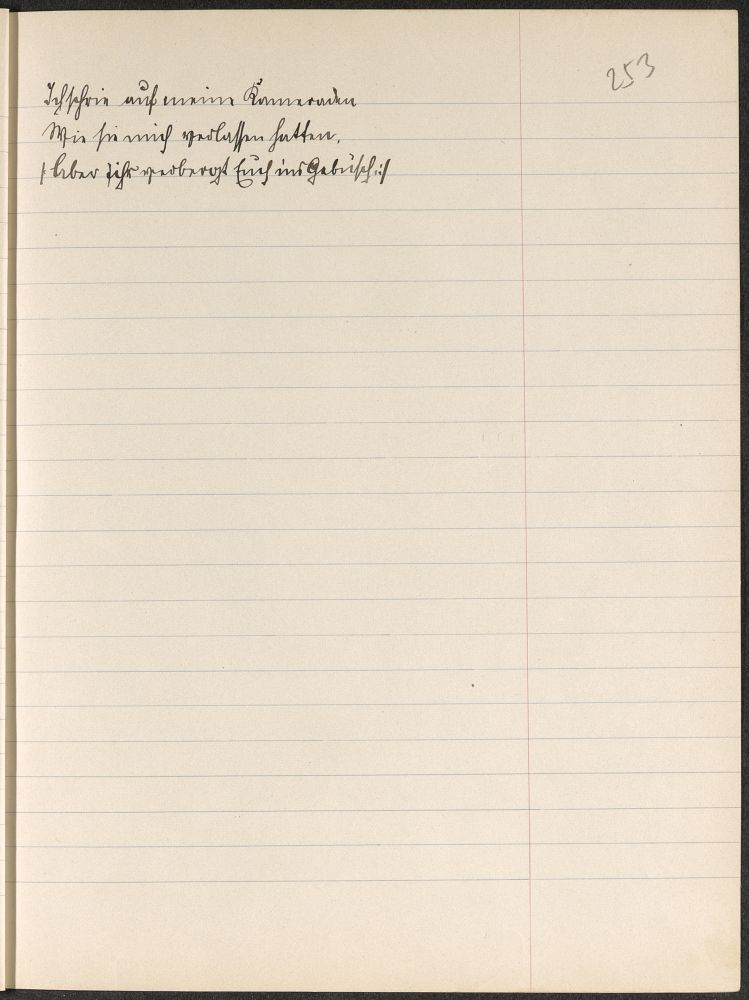 253
Ich schrie auf meine Kameraden
Wie sie mich verlassen hatten.
/: Aber ihr verbergt Euch ins Gebüsch :/